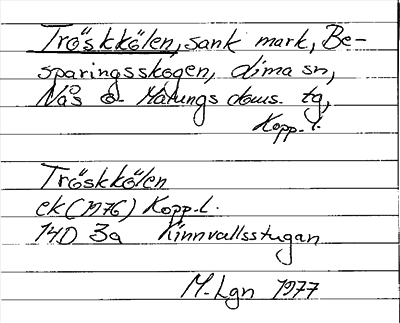 Tröskkölen, sank mark, Be-
sparingsskogen, Lima sn,
Nås o. Malungs doms. tg,
Kopp. l.
Tröskkölen
ek (1976) Kopp. l.
14D 3a Kinnvallsstugan
M. Lgn 1977